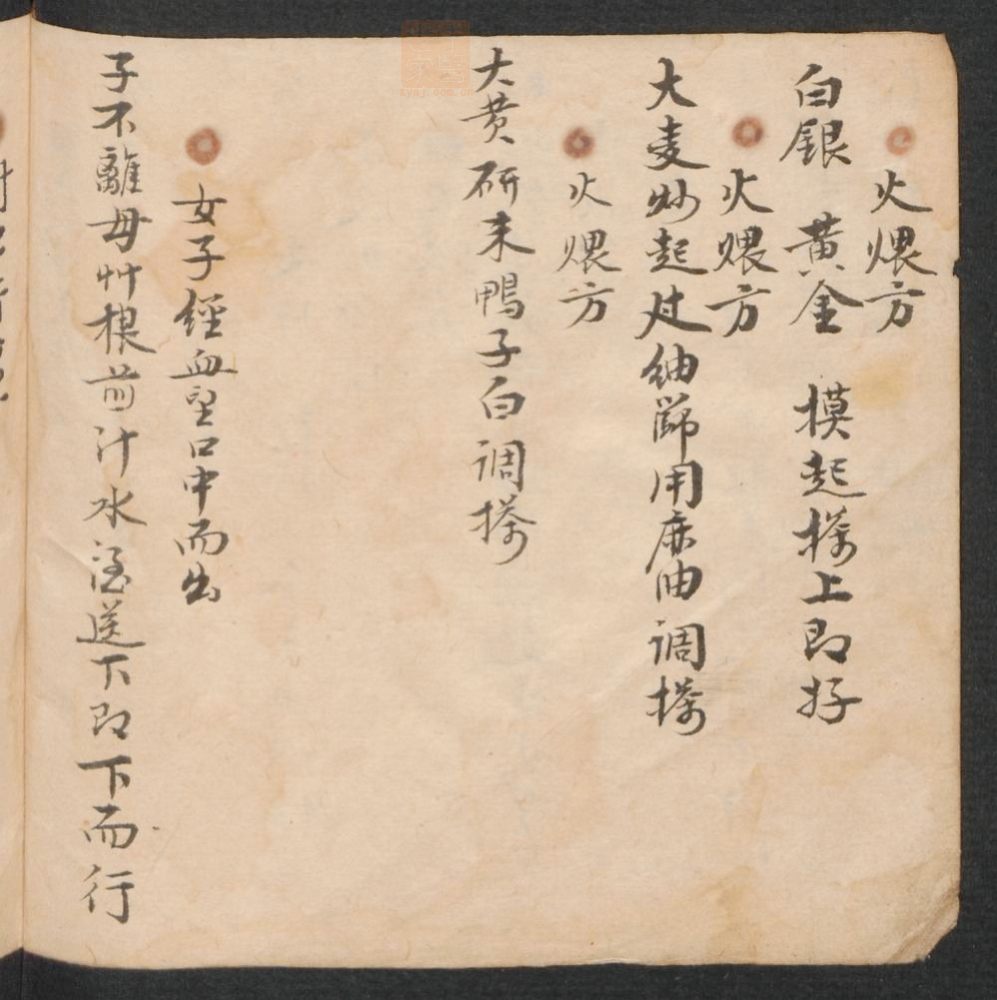 火煨方
白銀 黄金 摸起搽上即好
火煨方
大麦炒起过細篩用麻油调搽
火煨方
大黄研末鴨子白调搽
女子經血望口中而出
子不離母艸根前汁水送下即下而行